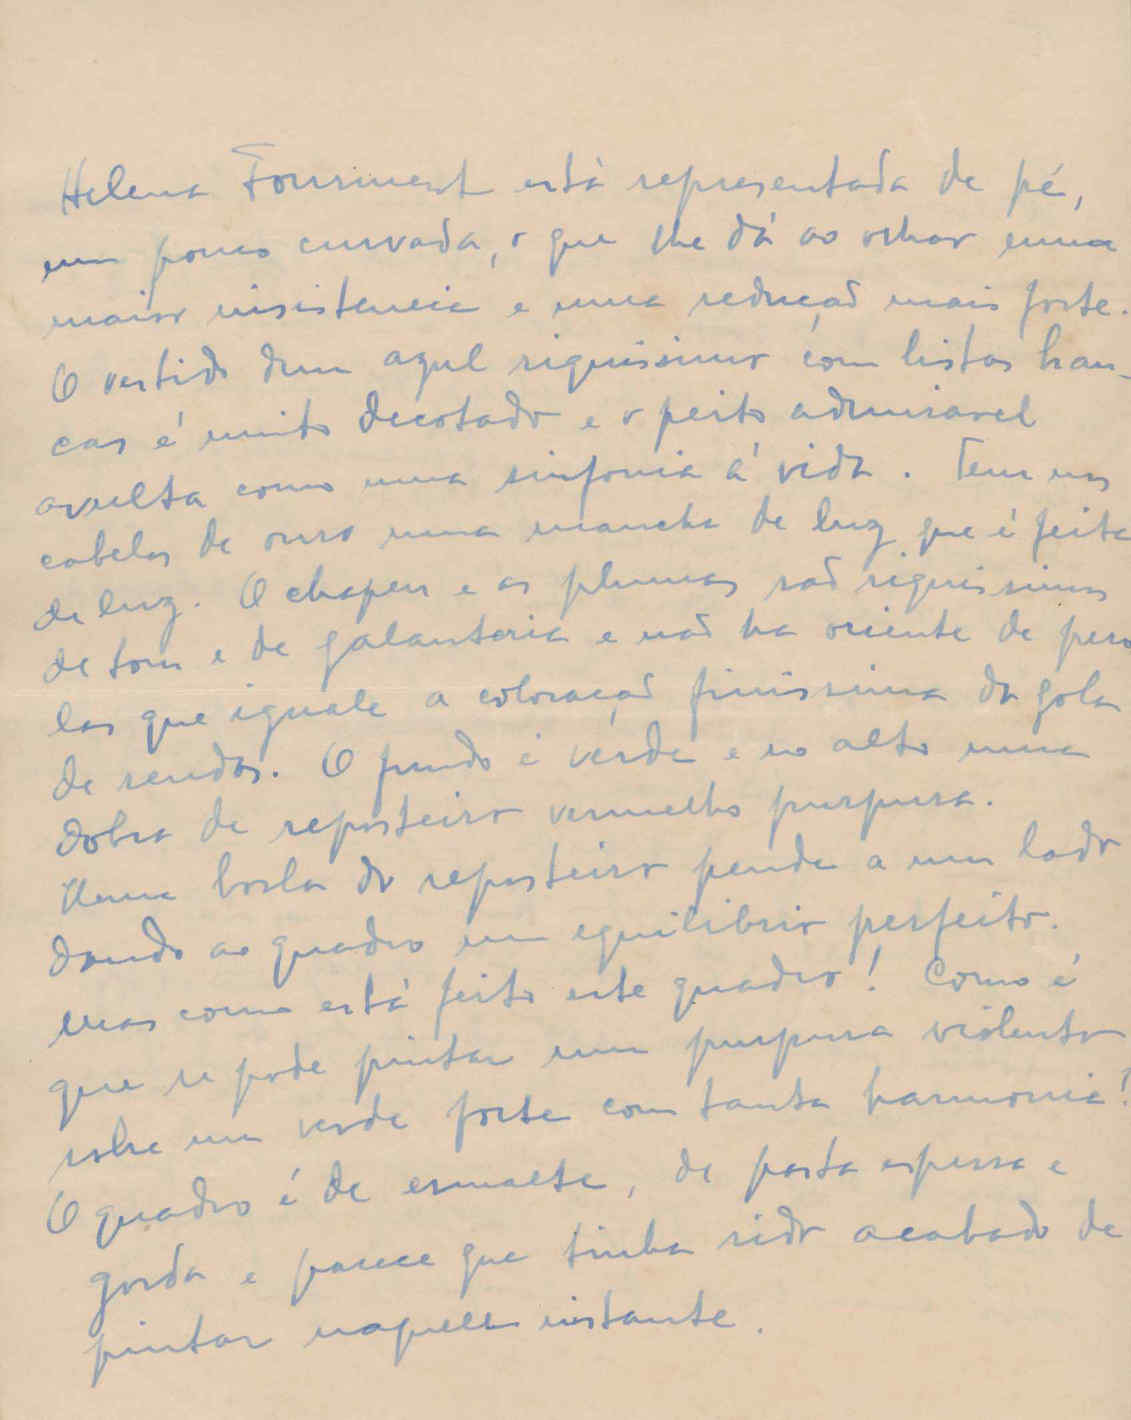 Helena Fourment está representada de pé,
um pouco curvada, o que lhe dá ao olhar uma
maior insistencia e uma seducção mais forte.
O vestido dum azul riquissimo com listas bran-
cas é muito decotado e o peito admiravel
avulta como uma sinfonia á vida. Tem nos
cabelos de ouro uma mancha de luz que é feita
de luz. O chapeu e as plumas são riquissimos
de tom e de galanteria e não ha oriente de pero
las que iguale a coloração finissima da gola
de rendas. O fundo é verde e no alto uma
dobra de reposteiro vermelho purpura.
Uma borla do reposteiro pende a um lado
dando ao quadro um equilibrio perfeito.
Mas como está feito este quadro! Como é
que se pode pintar um purpura violento
sobre um verde forte com tanta harmonia!
O quadro é de esmalte, de pasta espessa e
gorda e parece que tinha sido acabado de
pintar naquele instante.